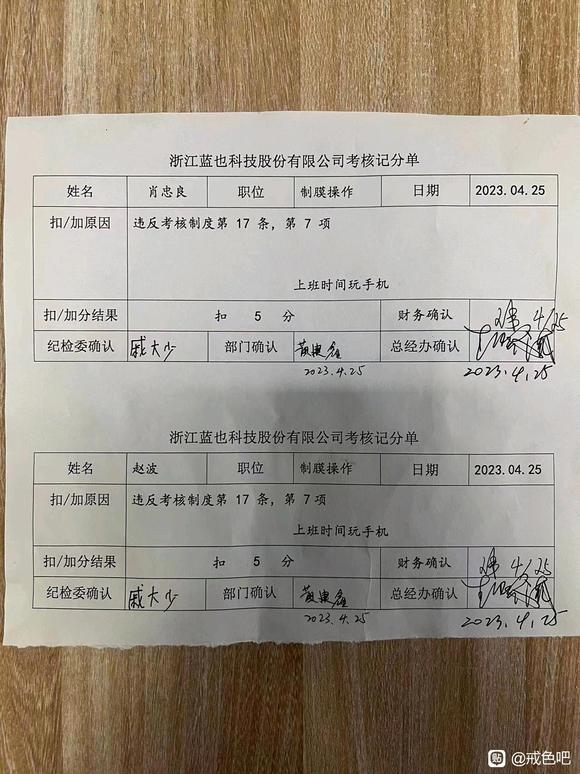 浙江蓝也科技股份有限公司考核记分单
姓名 肖忠良 职位 制膜操作 日期 2023.04.25
扣/加原因 违反考核制度第 17 条，第 7 项
上班时间玩手机
扣/加分结果 扣 5 分 财务确认 4/25
纪检委确认 戚大少 部门确认 总经办确认
2023.4.25 2023.4.25
浙江蓝也科技股份有限公司考核记分单
姓名 赵波 职位 制膜操作 日期 2023.04.25
扣/加原因 违反考核制度第 17 条，第 7 项
上班时间玩手机
扣/加分结果 扣 5 分 财务确认 4/25
纪检委确认 戚大少 部门确认 总经办确认
2023.4.25 2023.4.25
贴 @戒色吧